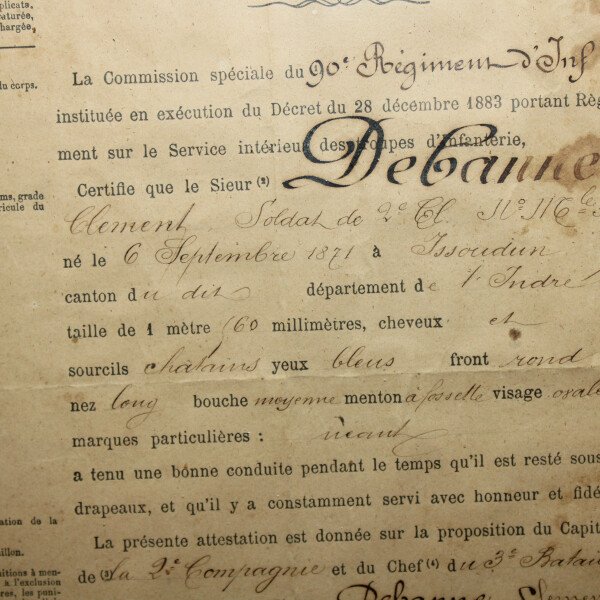 plicats.
raturée,
hargée,
du corps.
ms, grade
ricule du
ation de la
illon.
nitions à men-
à l'exclusion
res, les puni-
La Commission spéciale du 90e Régiment d'Inf
instituée en exécution du Décret du 28 décembre 1883 portant Règ
ment sur le Service intérieur des troupes d'Infanterie,
Certifie que le Sieur (2) Debanne
Clement Soldat de 2e Cl. No
né le 6 Septembre 1871 à Issoudun
canton du dit département de l'Indre
taille de 1 mètre 60 millimètres, cheveux et
sourcils chatains yeux bleus front rond
nez long bouche moyenne menton à fossette visage ovale
marques particulières : néant
a tenu une bonne conduite pendant le temps qu'il est resté sous
drapeaux, et qu'il y a constamment servi avec honneur et fidé
La présente attestation est donnée sur la proposition du Capit
de (3) la 2e Compagnie et du Chef (4) du 3e Batai
Debanne Clemen